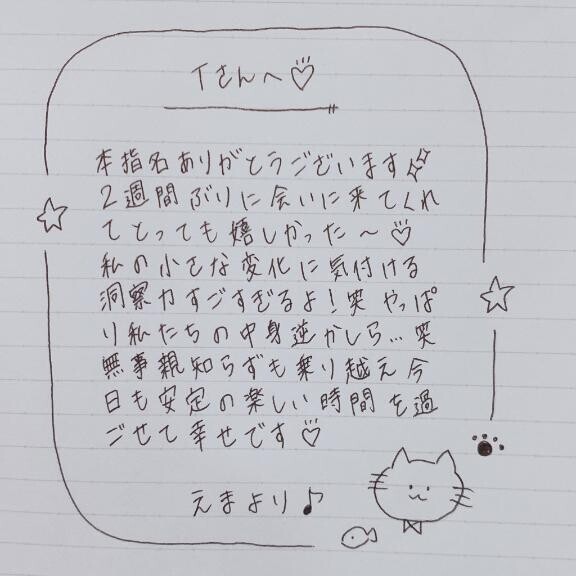 Tさんへ♡
本指名ありがとうございます
2週間ぶりに会いに来てくれ
てとっても嬉しかった〜♡
私の小さな変化に気付ける
洞察力すごすぎるよ！笑 やっぱ
り私たちの中身逆かしら…笑
無事親知らずも乗り越え今
日も安定の楽しい時間を過
ごせて幸せです♡
えまより♪